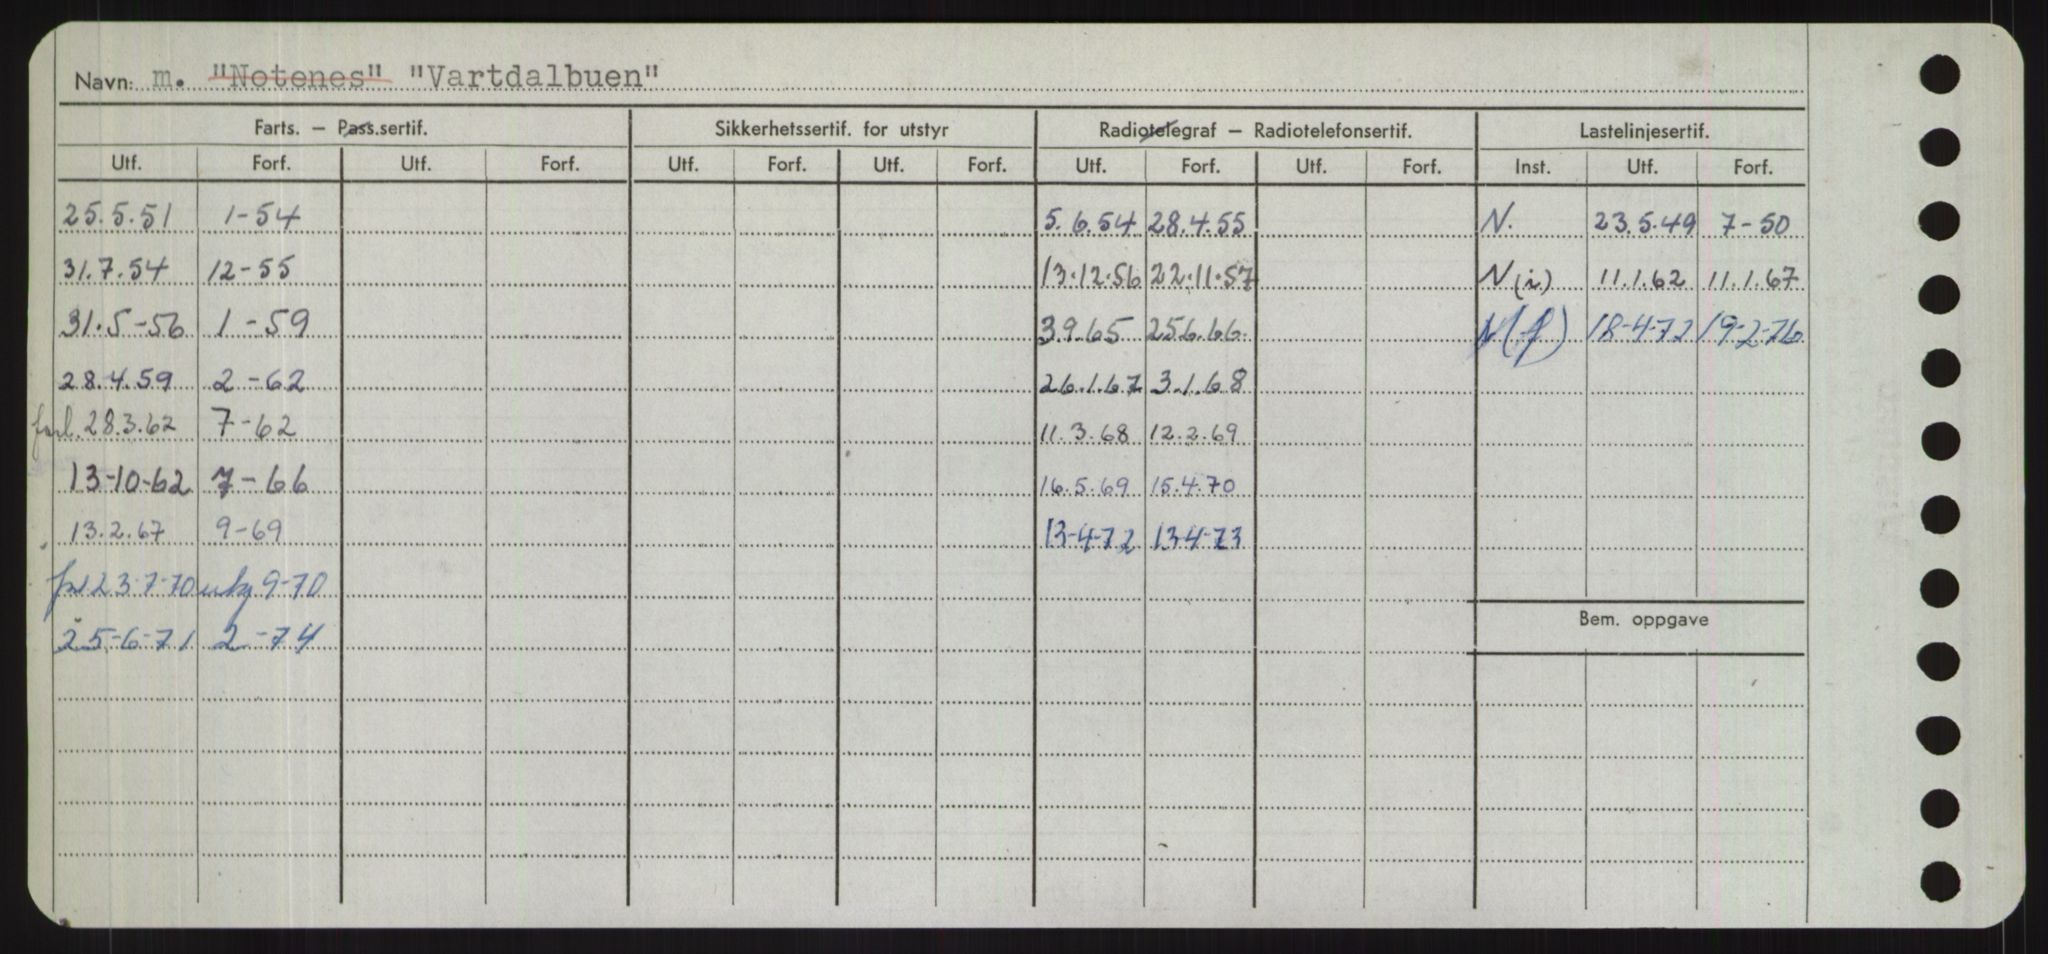 Navn: m. "Notenes" "Vartdalbuen"
Farts. – Pass.sertif. Sikkerhetssertif. for utstyr Radiotelegraf – Radiotelefonsertif. Lastelinjesertif.
Utf. Forf. Utf. Forf. Utf. Forf. Utf. Forf. Utf. Forf. Utf. Forf. Inst. Utf. Forf.
25.5.51 1-54 5.6.54 28.4.55 N. 23.5.49 7-50
31.7.54 12-55 13.12.56 22.11.57 N(i) 11.1.62 11.1.67
31.5-56 1-59 3.9.65 25.6.66. N(f) 18-4-72 19-2-76
28.4.59 2-62 26.1.67 3.1.68
forl. 28.3.62 7-62 11.3.68 12.2.69
13-10-62 7-66 16.5.69 15.4.70
13.2.67 9-69 13-4-72 13-4-73
23-7-70 9-70
25-6-71 2-74
Bem. oppgave